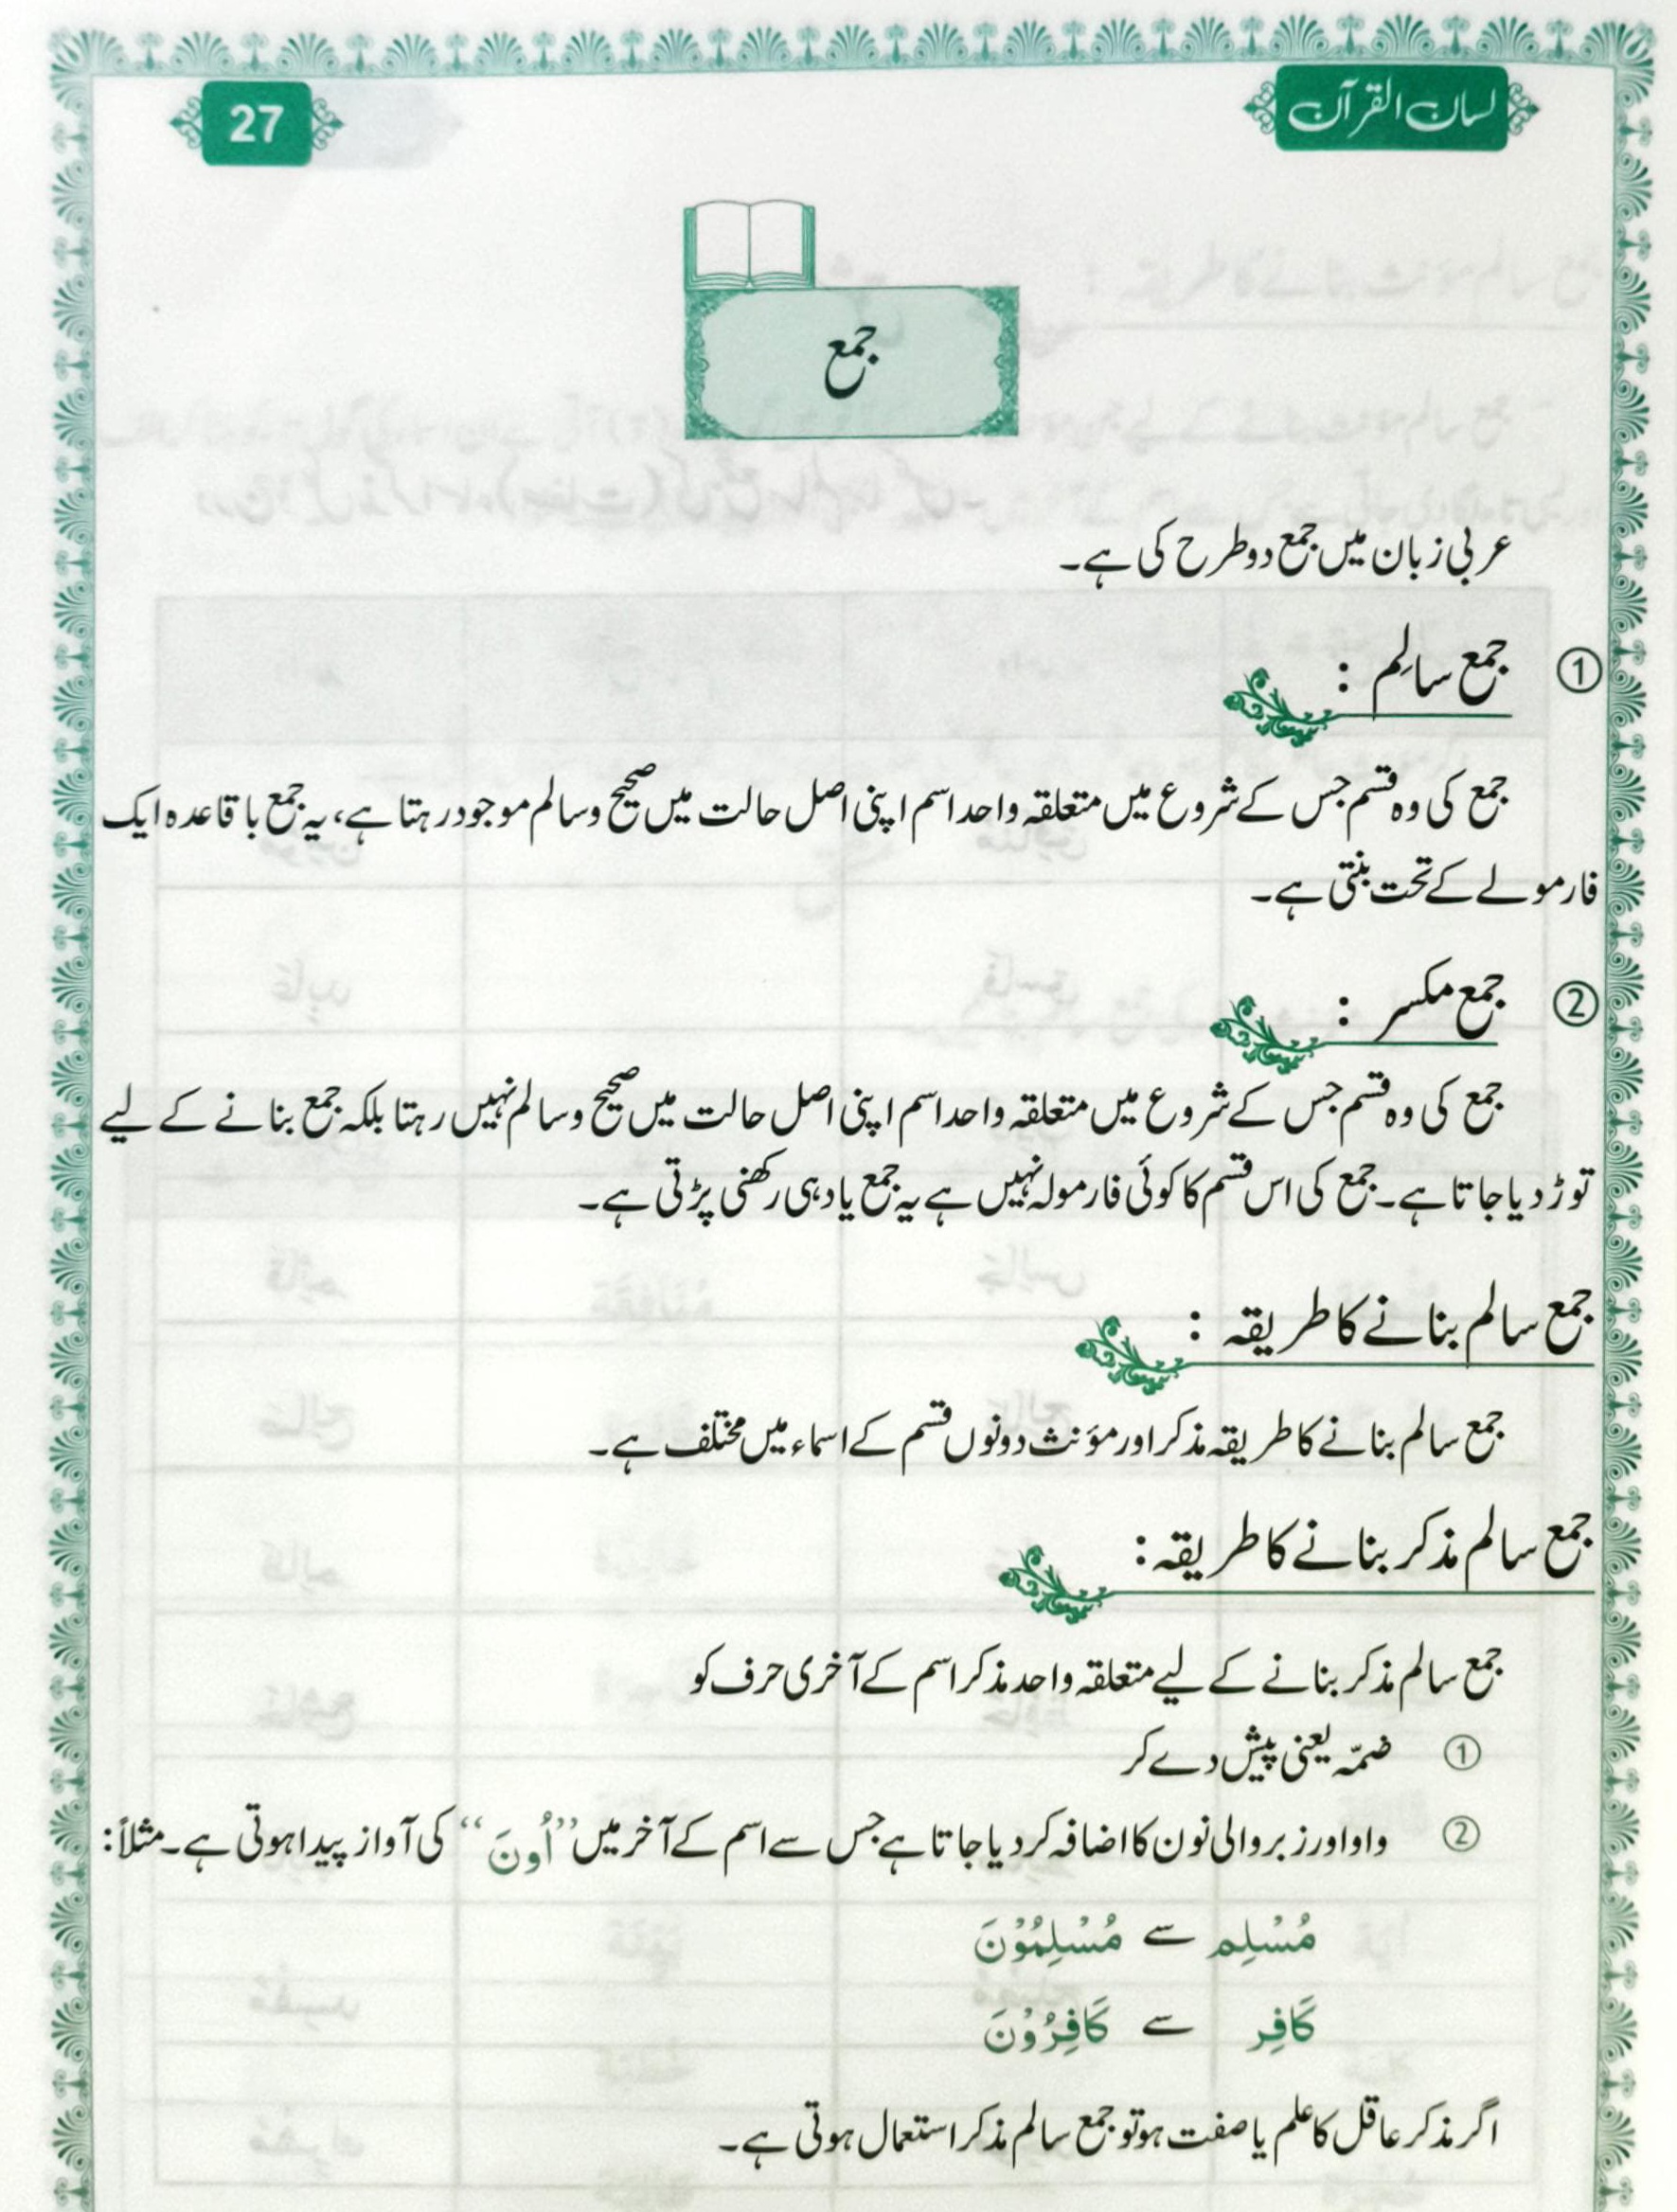 لسان القرآن
27
جمع
عربی زبان میں جمع دو طرح کی ہے۔
① جمع سالِم :
جمع کی وہ قسم جس کے شروع میں متعلقہ واحد اسم اپنی اصل حالت میں صحیح و سالم موجود رہتا ہے، یہ جمع باقاعدہ ایک
فارمولے کے تحت بنتی ہے۔
② جمع مکسر :
جمع کی وہ قسم جس کے شروع میں متعلقہ واحد اسم اپنی اصل حالت میں صحیح و سالم نہیں رہتا بلکہ جمع بنانے کے لیے
توڑ دیا جاتا ہے۔ جمع کی اس قسم کا کوئی فارمولہ نہیں ہے یہ جمع یاد ہی رکھنی پڑتی ہے۔
جمع سالم بنانے کا طریقہ :
جمع سالم بنانے کا طریقہ مذکر اور مؤنث دونوں قسم کے اسماء میں مختلف ہے۔
جمع سالم مذکر بنانے کا طریقہ:
جمع سالم مذکر بنانے کے لیے متعلقہ واحد مذکر اسم کے آخری حرف کو
① ضمّہ یعنی پیش دے کر
② واو اور زبر والی نون کا اضافہ کر دیا جاتا ہے جس سے اسم کے آخر میں ’’اُونَ‘‘ کی آواز پیدا ہوتی ہے۔ مثلاً:
مُسْلِم سے مُسْلِمُوْنَ
کَافِر سے کَافِرُوْنَ
اگر مذکر عاقل کا علم یا صفت ہو تو جمع سالم مذکر استعمال ہوتی ہے۔